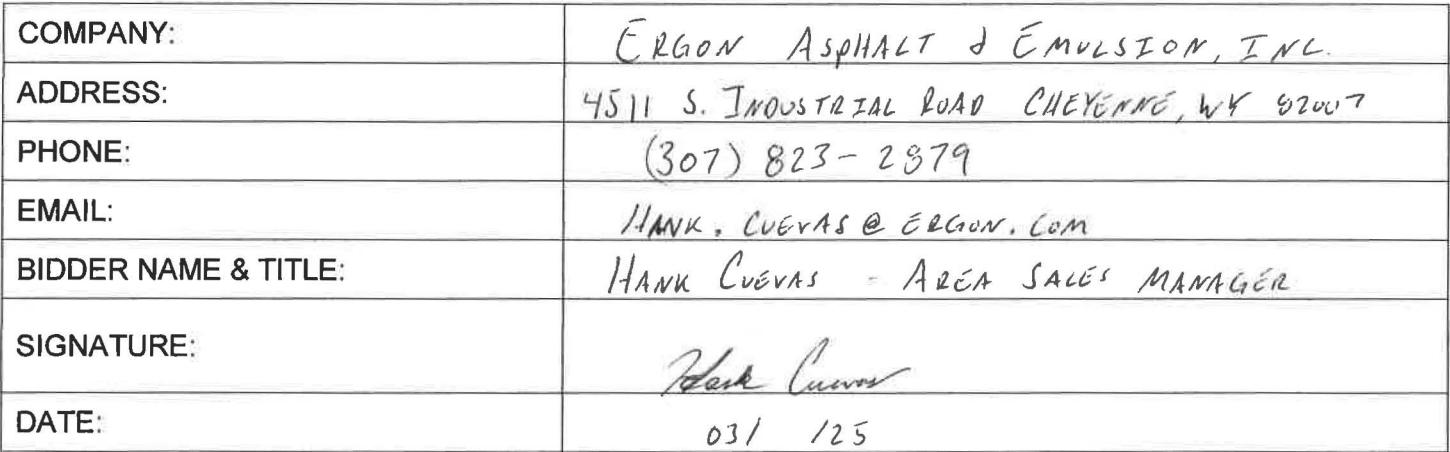 COMPANY: ERGON ASPHALT & EMULSION, INC.
ADDRESS: 4511 S. INDUSTRIAL ROAD CHEYENNE, WY 82007
PHONE: (307) 823-2879
EMAIL: HANK.CUEVAS@ERGON.COM
BIDDER NAME & TITLE: HANK CUEVAS - AREA SALES MANAGER
SIGNATURE: Hank Cuevas
DATE: 03/ /25